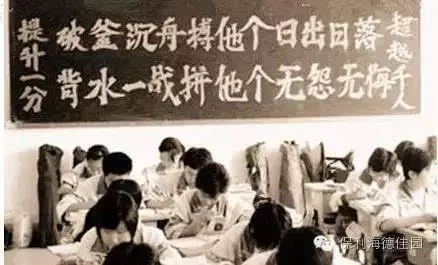 破釜沉舟搏他个日出日落
背水一战拼他个无怨无悔
提升一分
超越千人
保利海德佳园